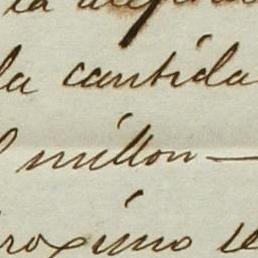 la
la cantida
millon —
roximo se